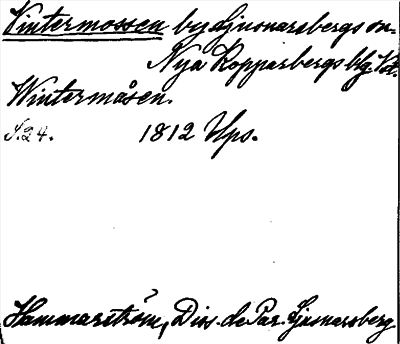 Vintermossen by Ljusnarsbergs sn.
Nya Kopparbergs blg Vst.
Wintermåsen.
S. 24. 1812 Ups.
Hammarström, Diss. de Par. Ljusnarsberg